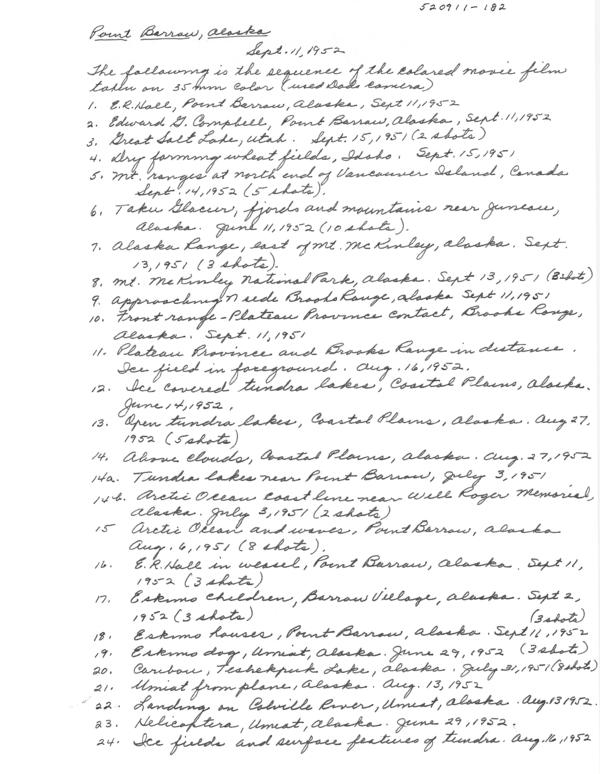 520911-182
Point Barrow, Alaska
Sept. 11, 1952
The following is the sequence of the colored movie film
taken on 35mm color (used Dads camera)
1. E.R. Hall, Point Barrow, Alaska, Sept 11, 1952
2. Edward G. Campbell, Point Barrow, Alaska, Sept. 11, 1952
3. Great Salt Lake, Utah. Sept. 15, 1951 (2 shots)
4. Dry farming wheat fields, Idaho. Sept. 15, 1951
5. Mt. ranges at north end of Vancouver Island, Canada
Sept. 14, 1952 (5 shots).
6. Taku Glacier, fjords and mountains near Juneau,
Alaska. June 11, 1952 (10 shots).
7. Alaska Range, east of Mt. McKinley, Alaska. Sept.
13, 1951 (3 shots).
8. Mt. McKinley National Park, Alaska. Sept 13, 1951 (3 shots)
9. Approaching N side Brooks Range, Alaska Sept 11, 1951
10. Front range-Plateau Province contact, Brooks Range,
Alaska. Sept. 11, 1951
11. Plateau Province and Brooks Range in distance.
Ice field in foreground. Aug. 16, 1952.
12. Ice covered tundra lakes, Coastal Plains, Alaska.
June 14, 1952.
13. Open tundra lakes, Coastal Plains, Alaska. Aug 27,
1952 (5 shots)
14. Above clouds, Coastal Plains, Alaska. Aug. 27, 1952
14a. Tundra lakes near Point Barrow, July 3, 1951
14b. Arctic Ocean coast line near Will Roger Memorial,
Alaska. July 3, 1951 (2 shots)
15 Arctic Ocean and waves, Point Barrow, Alaska
Aug. 6, 1951 (8 shots).
16. E.R. Hall in weasel, Point Barrow, Alaska. Sept 11,
1952 (3 shots)
17. Eskimo children, Barrow Village, Alaska. Sept 2,
1952 (3 shots)
18. Eskimo houses, Point Barrow, Alaska. Sept 11, 1952 (3 shots)
19. Eskimo dog, Umiat, Alaska. June 29, 1952 (3 shots)
20. Caribou, Teshekpuk Lake, Alaska. July 31, 1951 (8 shots)
21. Umiat from plane, Alaska. Aug. 13, 1952
22. Landing on Colville River, Umiat, Alaska. Aug 13 1952.
23. Helicoptera, Umiat, Alaska. June 29, 1952.
24. Ice fields and surface features of tundra. Aug. 16, 1952